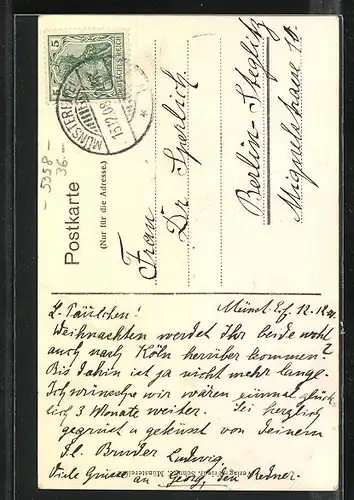 5
DEUTSCHES REICH
MÜNSTEREIFEL
13.12.08
5358-
36.-
Postkarte
(Nur für die Adresse.)
Frau
Dr Sperlich
Berlin-Steglitz
Miquelstrasse 10.
Münst. Eif. 12.12.
L. Päulchen!
Weihnachten werdet Ihr beide wohl
auch nach Köln herüber kommen?
Bis dahin ist ja nicht mehr lange.
Ich wünsche wir wären glück-
lich 3 Monate weiter. Sei herzlich
gegrüßt u geküsst von Deinem
Bruder Ludwig.
Viele Grüsse an Georg, den Redner.